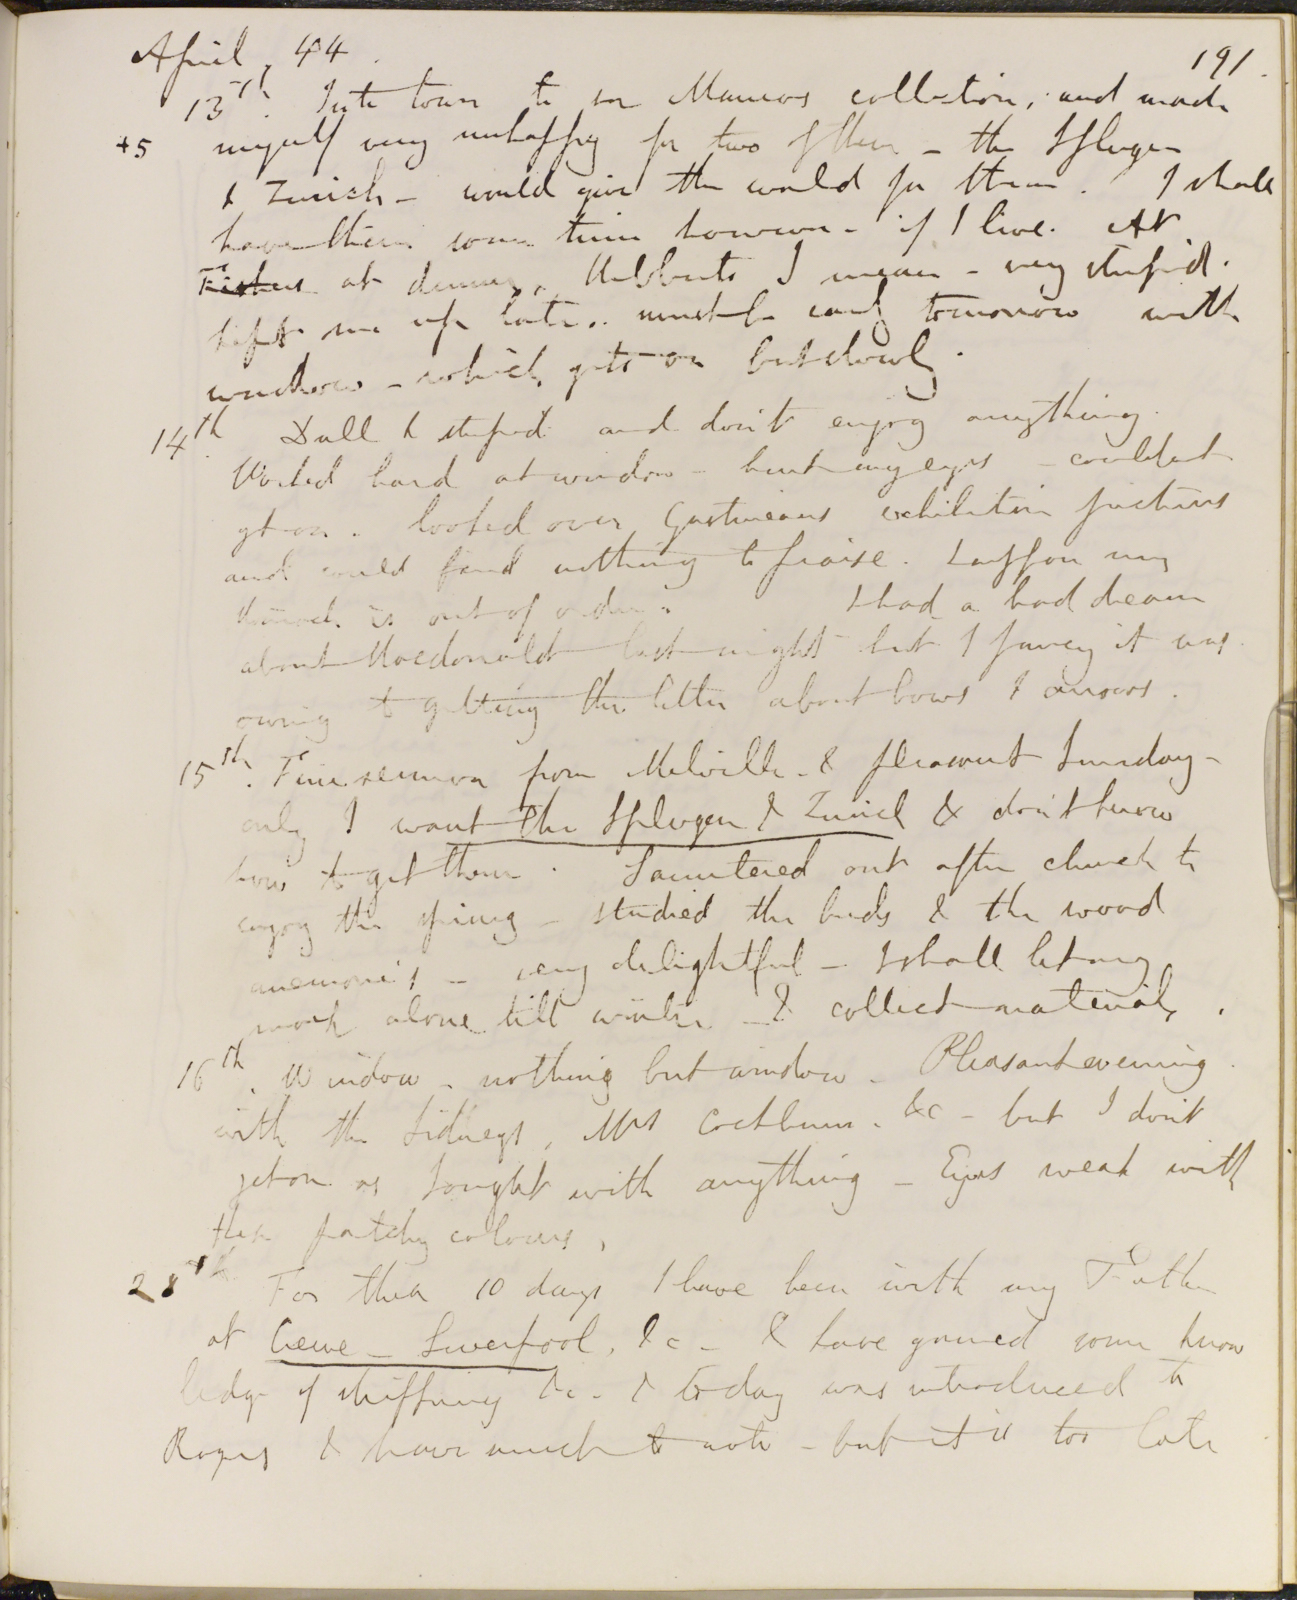 April, 44.
191.
13th. Into town to see Munros collection, and made
+5
myself very unhappy for two of them – the Splugen
& Zurich – would give the world for them. I shall
have them some time however – if I live. At
Fishers at dinner, Hibberts I mean – very stupid.
kept me up late. must be early tomorrow with
window – which gets on but slowly.
14th Dull & stupid and don't enjoy anything.
Worked hard at window – hurt my eyes – couldn't
get on. looked over Gastineaus exhibition pictures
and could find nothing to praise. Suppose my
stomach is out of order. I had a bad dream
about Macdonald last night but I fancy it was
owing to getting the letter about bows & arrows.
15th. Fine sermon from Melville. & pleasant Sunday –
only I want the Splugen & Zurich & don't know
how to get them. Sauntered out after church to
enjoy the spring – studied the buds & the wood
anemones – very delightful – I shall let my
work alone till winter – & collect materials.
16th. Window – nothing but window – Pleasant evening
with the Sidneys, Mrs Cockburn. &c – but I don't
get on as I ought with anything – Eyes weak with
these patchy colours,
28th For these 10 days I have been with my Father
at Crewe – Liverpool, &c – & have gained some know
ledge of shipping &c – & today was introduced to
Rogers & have much to note – but it is too late